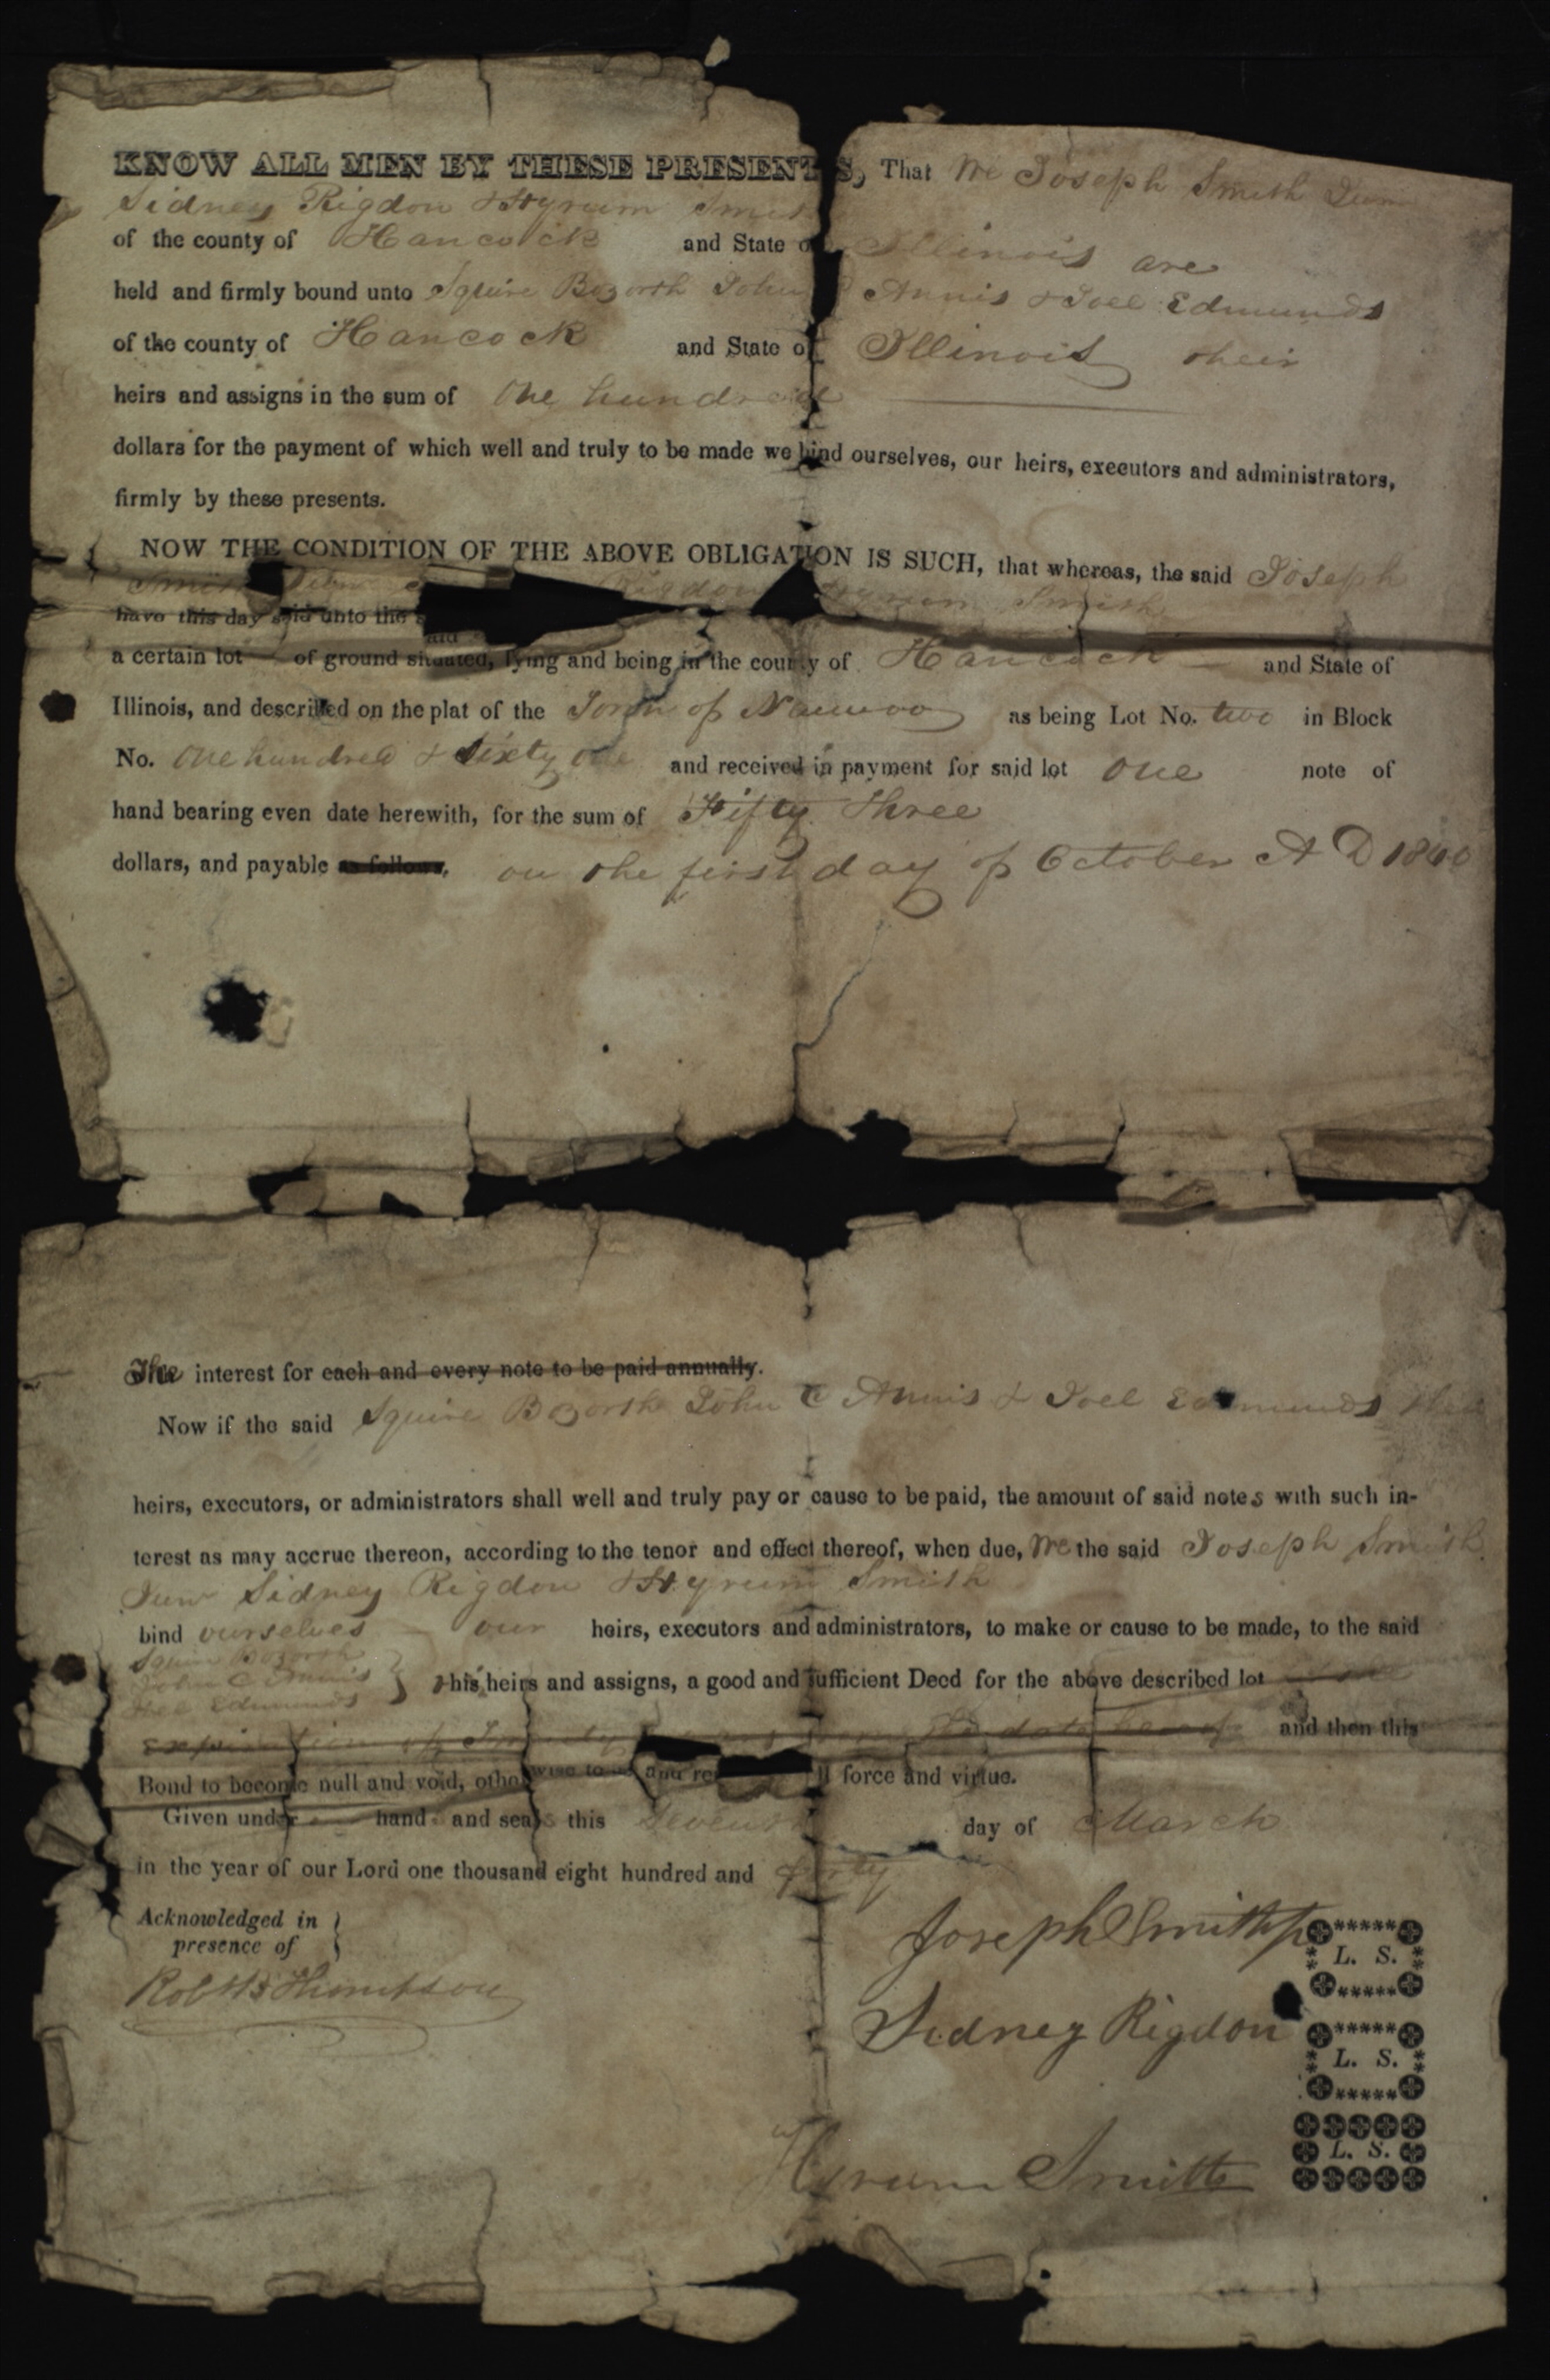 KNOW ALL MEN BY THESE PRESENTS, That We Joseph Smith Junr
Sidney Rigdon & Hyrum Smith
of the county of Hancock and State of Illinois are
held and firmly bound unto Squire Bozorth John C Annis & Joel Edmunds
of the county of Hancock and State of Illinois their
heirs and assigns in the sum of One hundred
dollars for the payment of which well and truly to be made we bind ourselves, our heirs, executors and administrators,
firmly by these presents.
NOW THE CONDITION OF THE ABOVE OBLIGATION IS SUCH, that whereas, the said Joseph
Smith Rigdon Hyrum Smith
have this day sold unto the said
a certain lot of ground situated, lying and being in the county of Hancock and State of
Illinois, and described on the plat of the Town of Nauvoo as being Lot No. two in Block
No. One hundred & sixty one and received in payment for said lot one note of
hand bearing even date herewith, for the sum of Fifty Three
dollars, and payable as follows, on the first day of October A D 1840
The interest for each and every note to be paid annually.
Now if the said Squire Bozorth John C Annis & Joel Edmunds their
heirs, executors, or administrators shall well and truly pay or cause to be paid, the amount of said notes with such in-
terest as may accrue thereon, according to the tenor and effect thereof, when due, We the said Joseph Smith
Junr Sidney Rigdon & Hyrum Smith
bind ourselves our heirs, executors and administrators, to make or cause to be made, to the said
Squire Bozorth
John C Annis
Joel Edmunds } his heirs and assigns, a good and sufficient Deed for the above described lot
expiration of the date hereof and then this
Bond to become null and void, otherwise to and re ll force and virtue.
Given under hand and seals this Seventh day of March
in the year of our Lord one thousand eight hundred and forty
Acknowledged in }
presence of
Robt B Thompson
Joseph Smith jr L. S.
Sidney Rigdon L. S.
Hyrum Smith L. S.